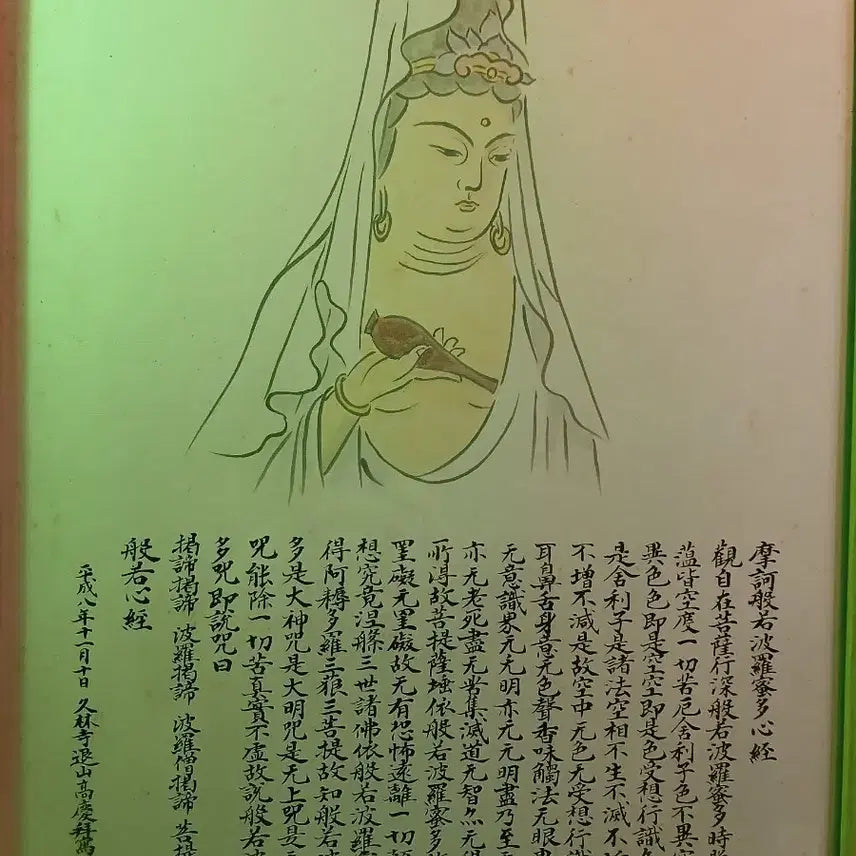 摩訶般若波羅蜜多心経
觀自在菩薩行深般若波羅蜜多時
蘊皆空度一切苦厄舍利子色不異
異色色即是空空即是色受想行識
是舍利子是諸法空相不生不滅不
不增不減是故空中无色无受想行
耳鼻舌身意无色聲香味觸法无眼
无意識界无无明亦无无明盡乃至
亦无老死盡无苦集滅道无智亦无
所得故菩提薩埵依般若波羅蜜多
罣礙无罣礙故无有恐怖遠離一切
想究竟涅槃三世諸佛依般若波羅
得阿耨多羅三藐三菩提故知般若
多是大神咒是大明咒是无上咒是
咒能除一切苦真實不虛故説般若
多咒即説咒曰
揭諦揭諦 波羅揭諦 波羅僧揭諦 菩
般若心経
平成八年十一月十日 久林寺退山高慶拜寫